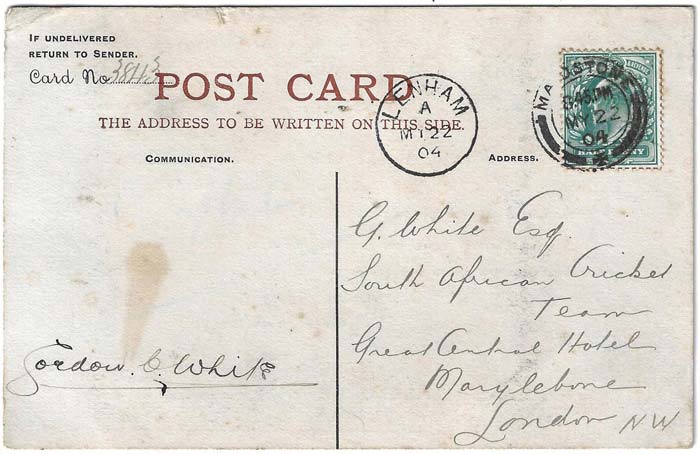 IF UNDELIVERED
RETURN TO SENDER.
Card No 38113
POST CARD.
THE ADDRESS TO BE WRITTEN ON THIS SIDE.
LENHAM
A
MY 22
04
MAIDSTONE
PM
MY 22
04
HALFPENNY
COMMUNICATION.
ADDRESS.
G. White Esq.
South African Cricket
Team
Great Central Hotel
Marylebone
London NW
Gordon. C. White